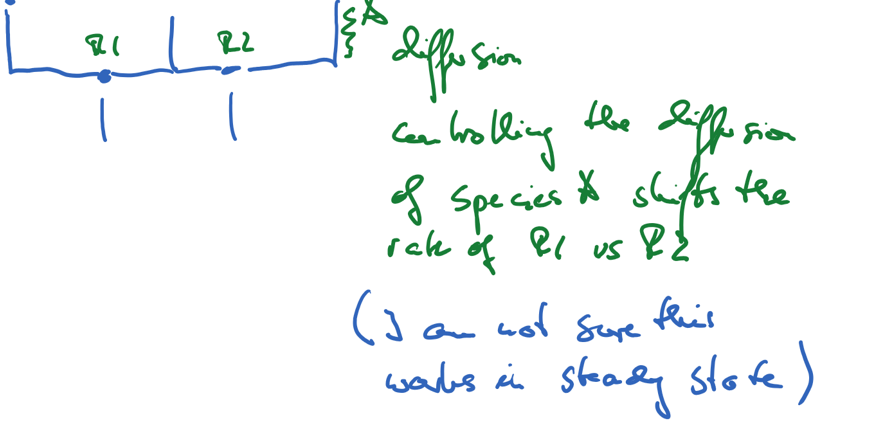 R1 R2 A
diffusion
controlling the diffusion
of species A shifts the
rate of R1 vs R2
(I am not sure this
works in steady state)